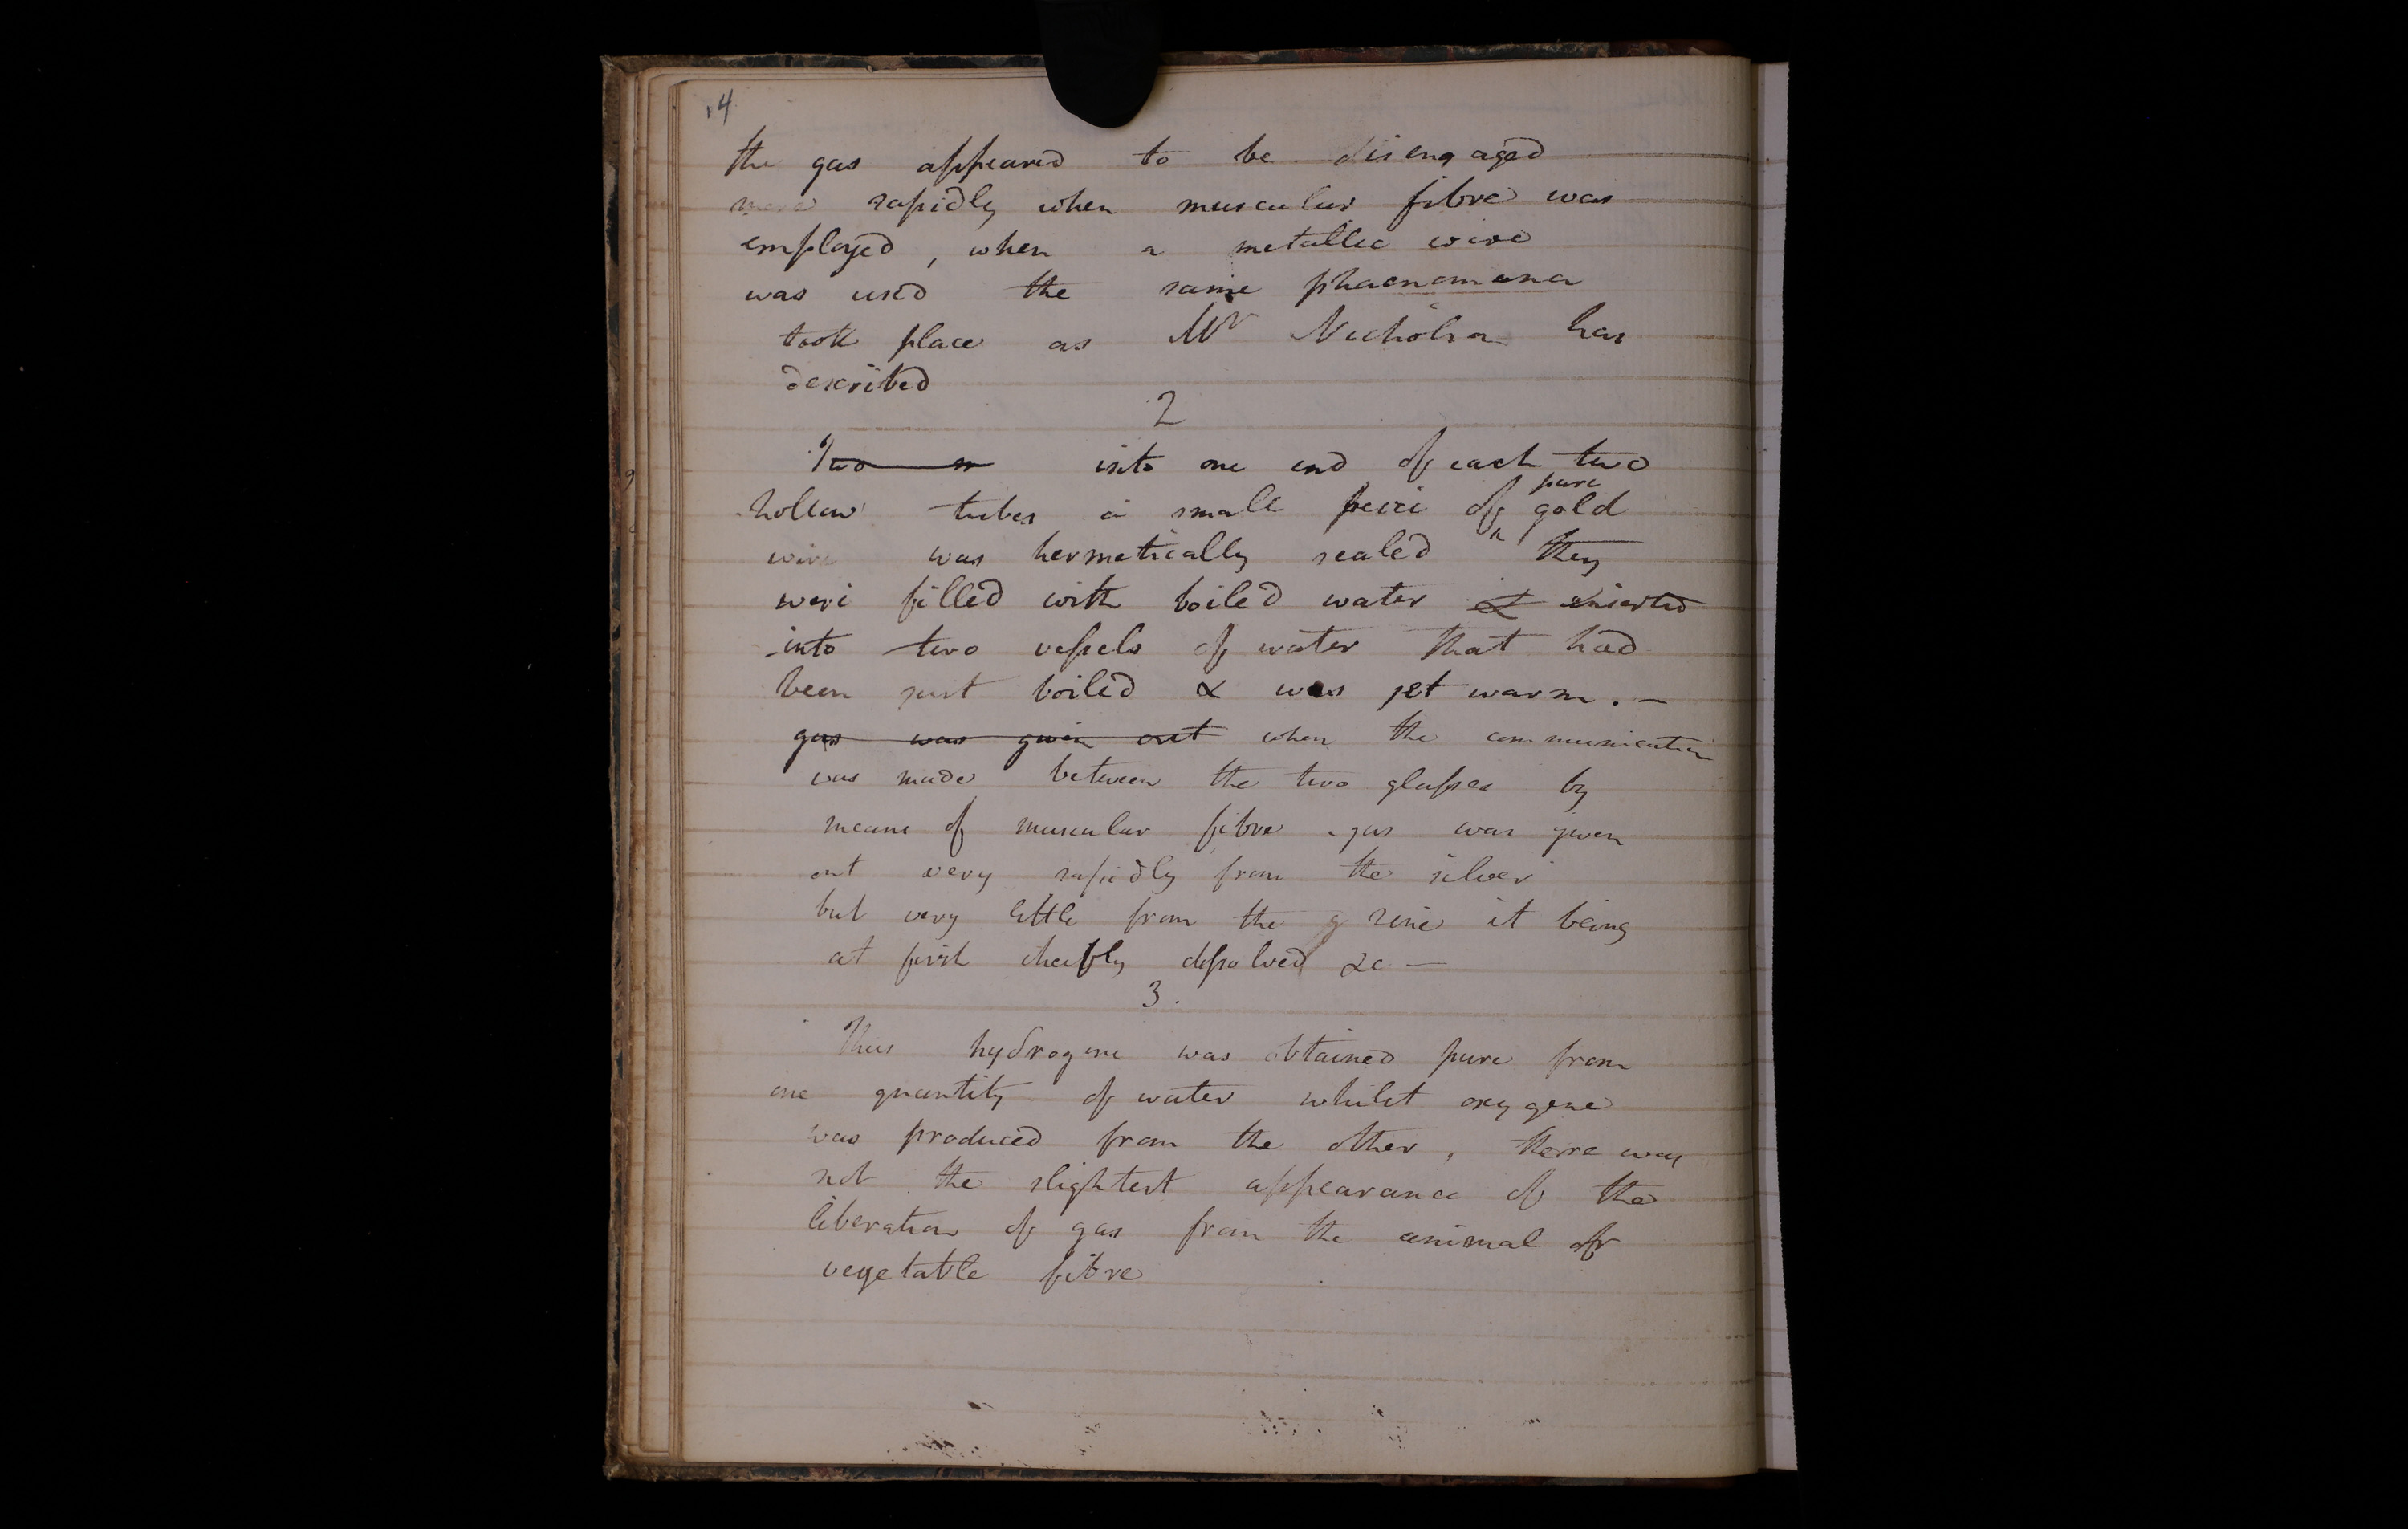 14
the gas appeared to be disengaged
more rapidly when muscular fibre was
employed, when a metallic wire
was used the same phaenomena
took place as Mr Nicholson has
described
2
Two into one end of each two
pure
hollow tubes a small peice of gold
wire was hermetically sealed they
were filled with boiled water & inserted
into two vessels of water that had
been just boiled & was yet warm. —
gas was given out when the communication
was made between the two glasses by
means of muscular fibre gas was given
out very rapidly from the silver
but very little from the g zinc it being
at first cheifly dissolved &c —
3.
Thus hydrogene was obtained pure from
one quantity of water whilst oxygene
was produced from the other, there was
not the slightest appearance of the
liberation of gas from the animal or
vegetable fibre